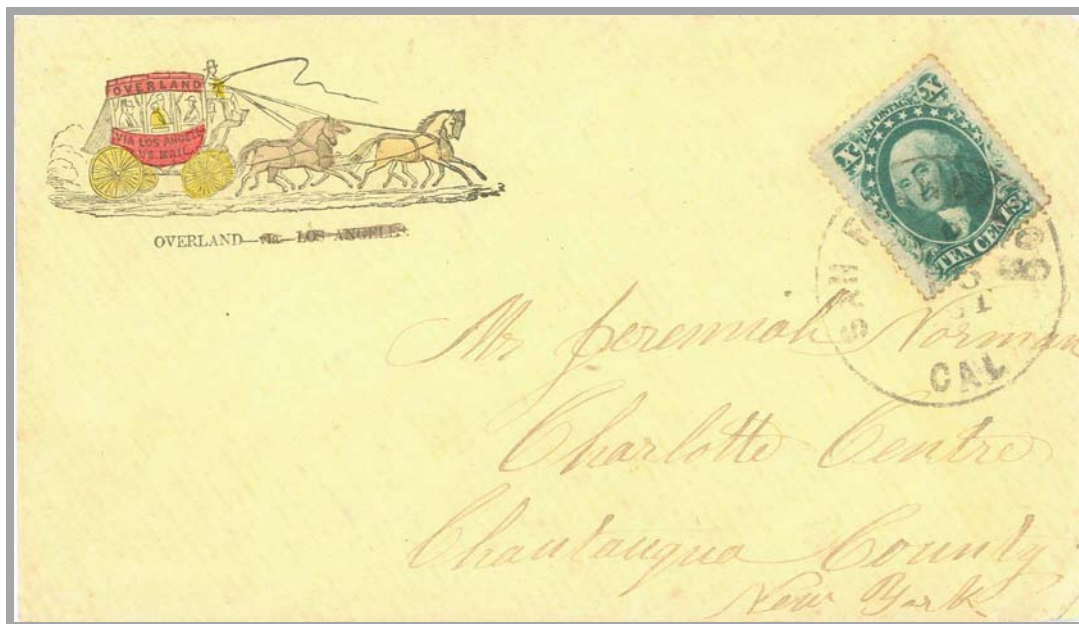 OVERLAND
VIA LOS ANGELES
U.S. MAIL.
OVERLAND—via—LOS ANGELES.
X X
U.S. POSTAGE
TEN CENTS
SAN
CAL
Mr Jeremiah Norman
Charlotte Centre
Chautauqua County
New York